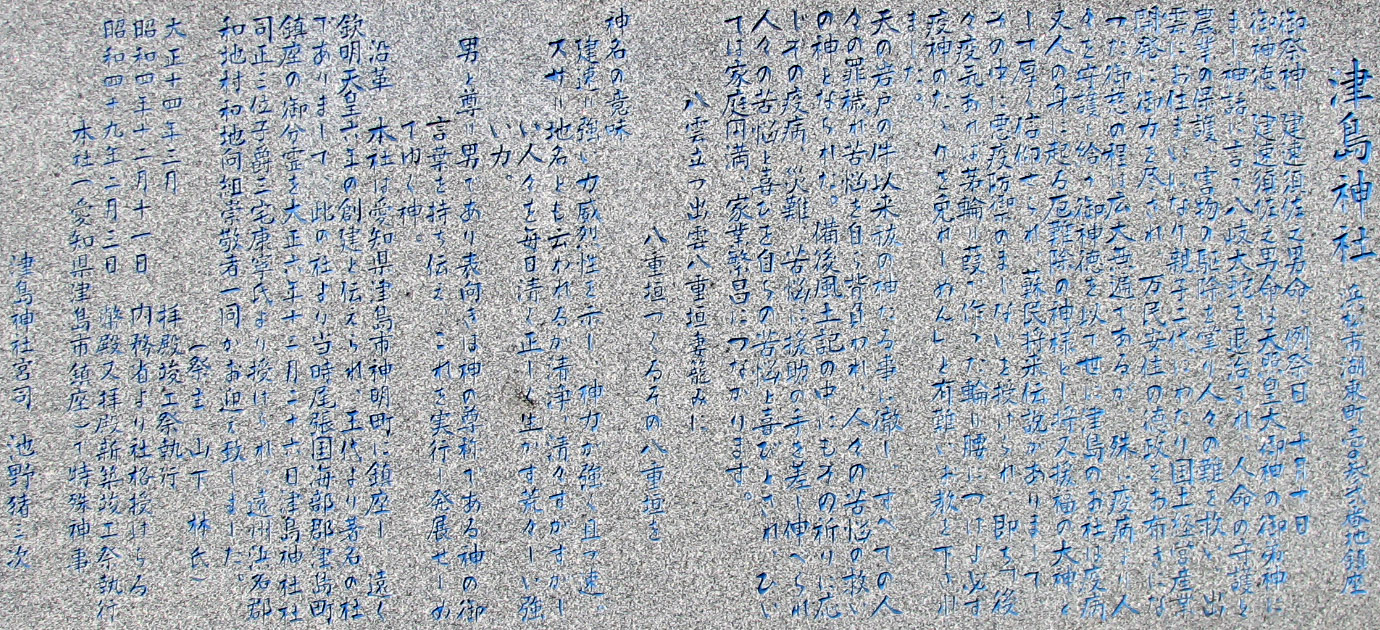 津島神社 浜松市湖東町 番地鎮座
御祭神 建速須佐之男命 例祭日 十月十日
御神徳 建速須佐之男命は天照皇大御神の御弟神に
まし神話に言う八岐大蛇を退治され 人命の守護と
農業の保護 害物の駆除を掌り人々の難を救い 出
雲にお住まいになり親子二代にわたり国土経営産業
開発に御力を尽され 万民安住の徳政をお布きにな
った御恩の程は広大無辺であるが、殊に疫病より人
々を守護し給う御神徳を以て世に津島のお社は疫病
又人の身に起る厄難除の神様とし将又授福の大神と
して厚く信仰せられ 蘇民将来伝説がありまして
その中に悪疫防御のまじないを授けられ 即ち「後
々疫気あれば茅輪 葭で作った輪 腰につけよ必ず
疫神のたゝりを免れしめん」と有難いお教を下され
ました。
天の岩戸の件以来祓の神たる事に徹し すべての人
々の罪穢れ苦悩を自ら背負われ 人々の苦悩の救い
の神となられた。備後風土記の中にもその祈りに応
じその疫病 災難 苦悩に援助の手を差し伸べられ
人々の苦悩と喜びを自らの苦悩と喜びとされ、ひい
ては家庭円満 家業繁昌につながります。
八雲立つ出雲八重垣妻籠みに
八重垣つくるその八重垣を
神名の意味
建速 強い力威烈性を示し 神力が強く且つ速。
スサ 地名とも云われるが清浄 清々すがすがし
い人々を毎日清く正しく生かす荒々しい強
い力。
男と尊 男であり表向きは神の尊称である神の御
言葉を持ち伝え これを実行し発展せしめ
て ゆく神。
沿革 本社は愛知県津島市神明町に鎮座し 遠く
欽明天皇六年の創建と伝えられ、王代より著名の社
でありまして、此の社より当時尾張国海部郡津島町
鎮座の御分霊を大正六年十二月二十六日津島神社社
司正三位子爵三宅康寧氏より授けられ、遠州浜名郡
和地村和地向組崇敬者一同がお迎え致しました。
大正十四年二月 拝殿竣工祭執行
（祭主 山下 林氏）
昭和四年十二月十一日 内務省より社格授けらる
昭和四十九年二月三日 幣殿又拝殿新築竣工祭執行
本社（愛知県津島市鎮座）で特殊神事
津島神社宮司 池野猪三次